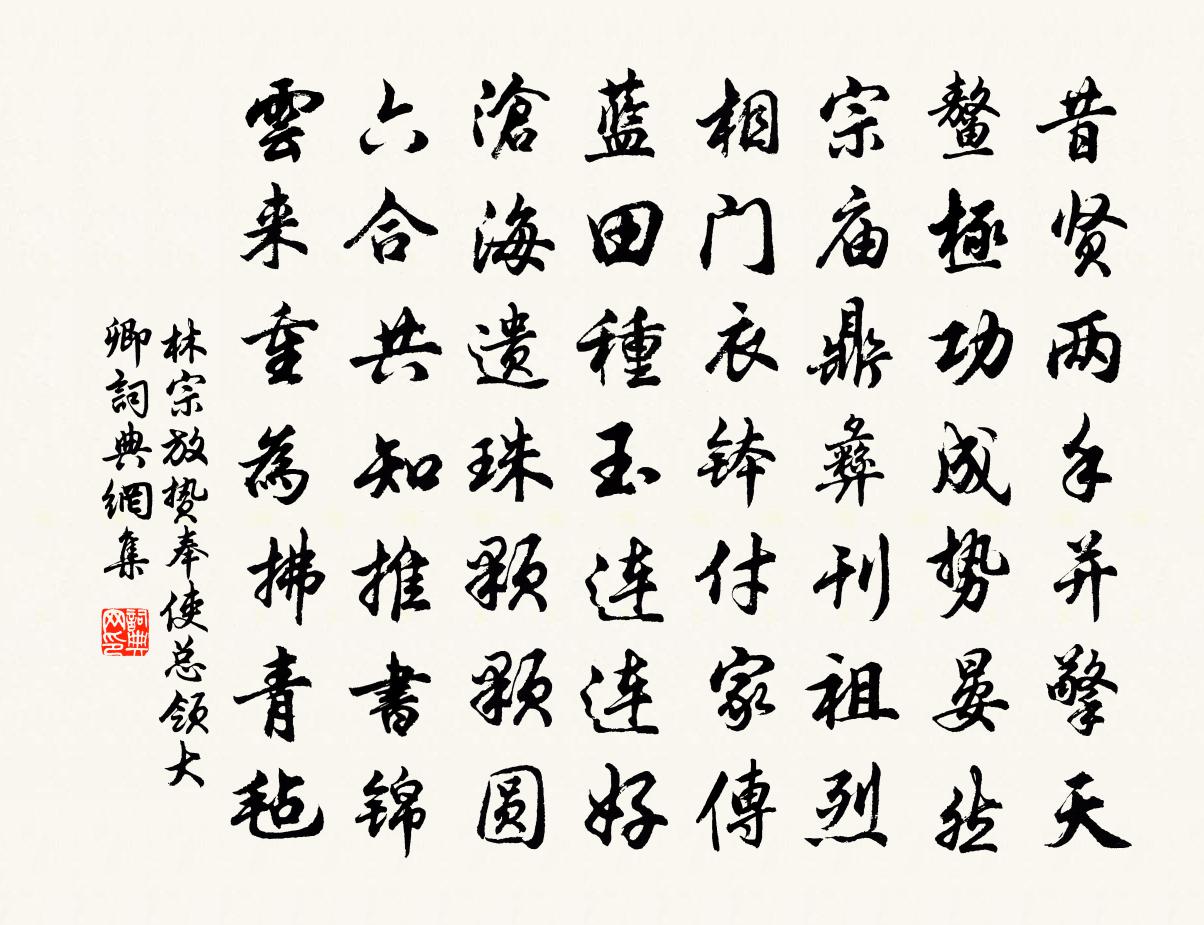 昔贤两手并擎天
鳌極功成势晏然
宗庙鼎彝刊祖烈
相门衣钵付家傳
藍田種玉连连好
滄海遗珠颗颗圆
六合共知推書锦
雲来重為拂青毡
林宗放贽奉使总领大
卿詞典網集
詞典网印